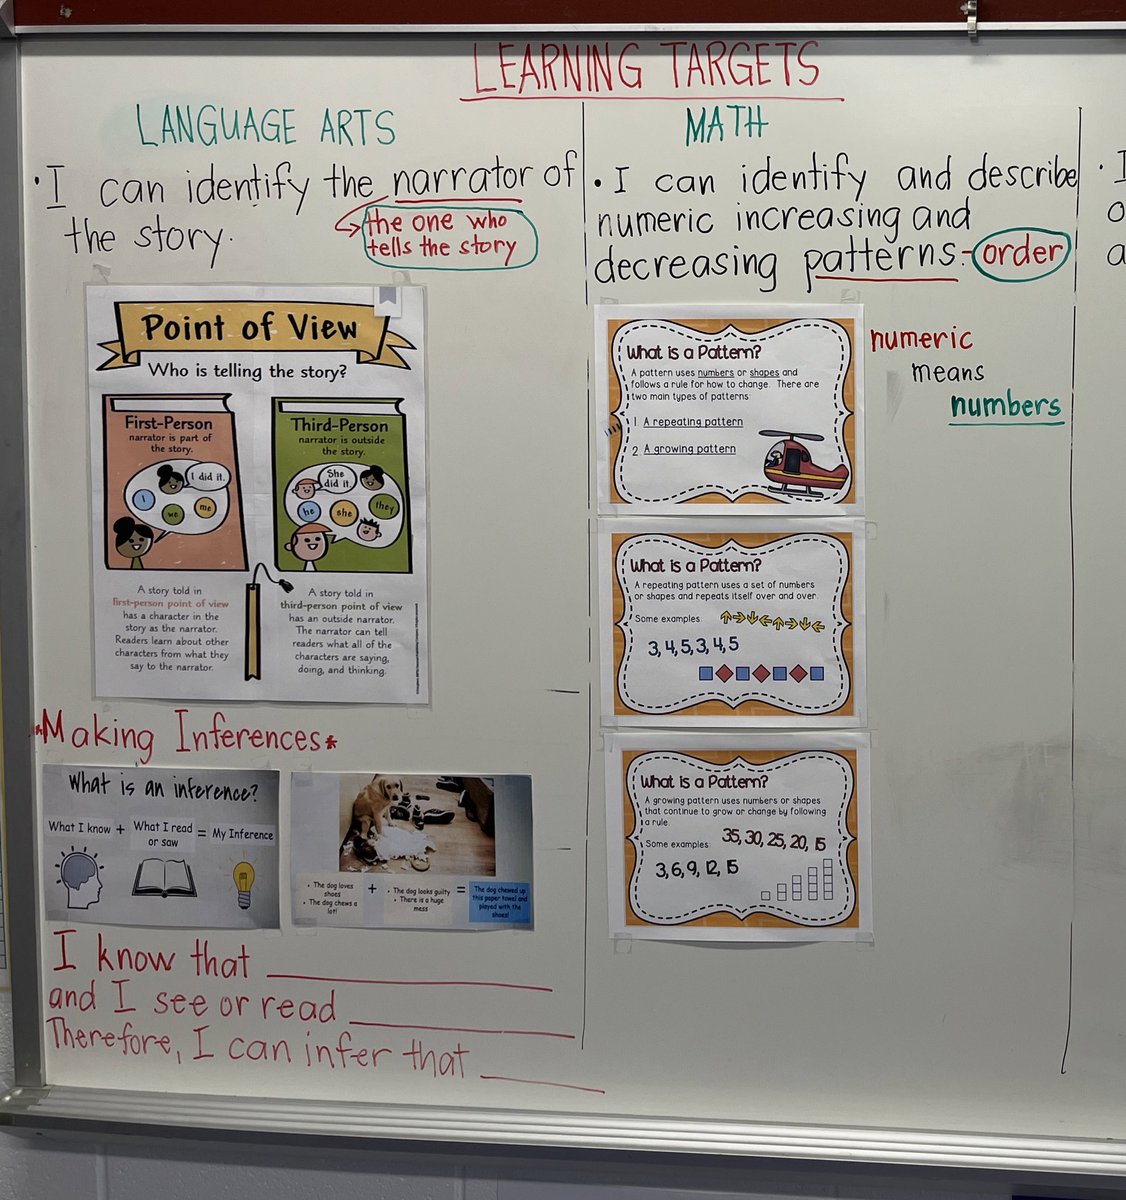 LEARNING TARGETS
LANGUAGE ARTS
• I can identify the narrator of
the story.
the one who
tells the story
Point of View
Who is telling the story?
First-Person
narrator is part of
the story.
I did it.
I
we
me
Third-Person
narrator is outside
the story.
She
did it.
he
she
they
A story told in
first-person point of view
has a character in the
story as the narrator.
Readers learn about other
characters from what they
say to the narrator.
A story told in
third-person point of view
has an outside narrator.
The narrator can tell
readers what all of the
characters are saying,
doing, and thinking.
*Making Inferences*
What is an inference?
What I know + What I read
or saw = My Inference
• The dog loves
shoes
• The dog chews a
lot!
+
• The dog looks guilty
• There is a huge
mess
=
The dog chewed up
this paper towel and
played with the
shoes!
I know that ____
and I see or read ____
Therefore, I can infer that ____
MATH
• I can identify and describe
numeric increasing and
decreasing patterns.-order
numeric
means
numbers
What is a Pattern?
A pattern uses numbers or shapes and
follows a rule for how to change. There are
two main types of patterns:
1 A repeating pattern
2 A growing pattern
What is a Pattern?
A repeating pattern uses a set of numbers
or shapes and repeats itself over and over.
Some examples:
3, 4, 5, 3, 4, 5
What is a Pattern?
A growing pattern uses numbers or shapes
that continue to grow or change by following
a rule.
Some examples:
35, 30, 25, 20, 15
3, 6, 9, 12, 15
• I